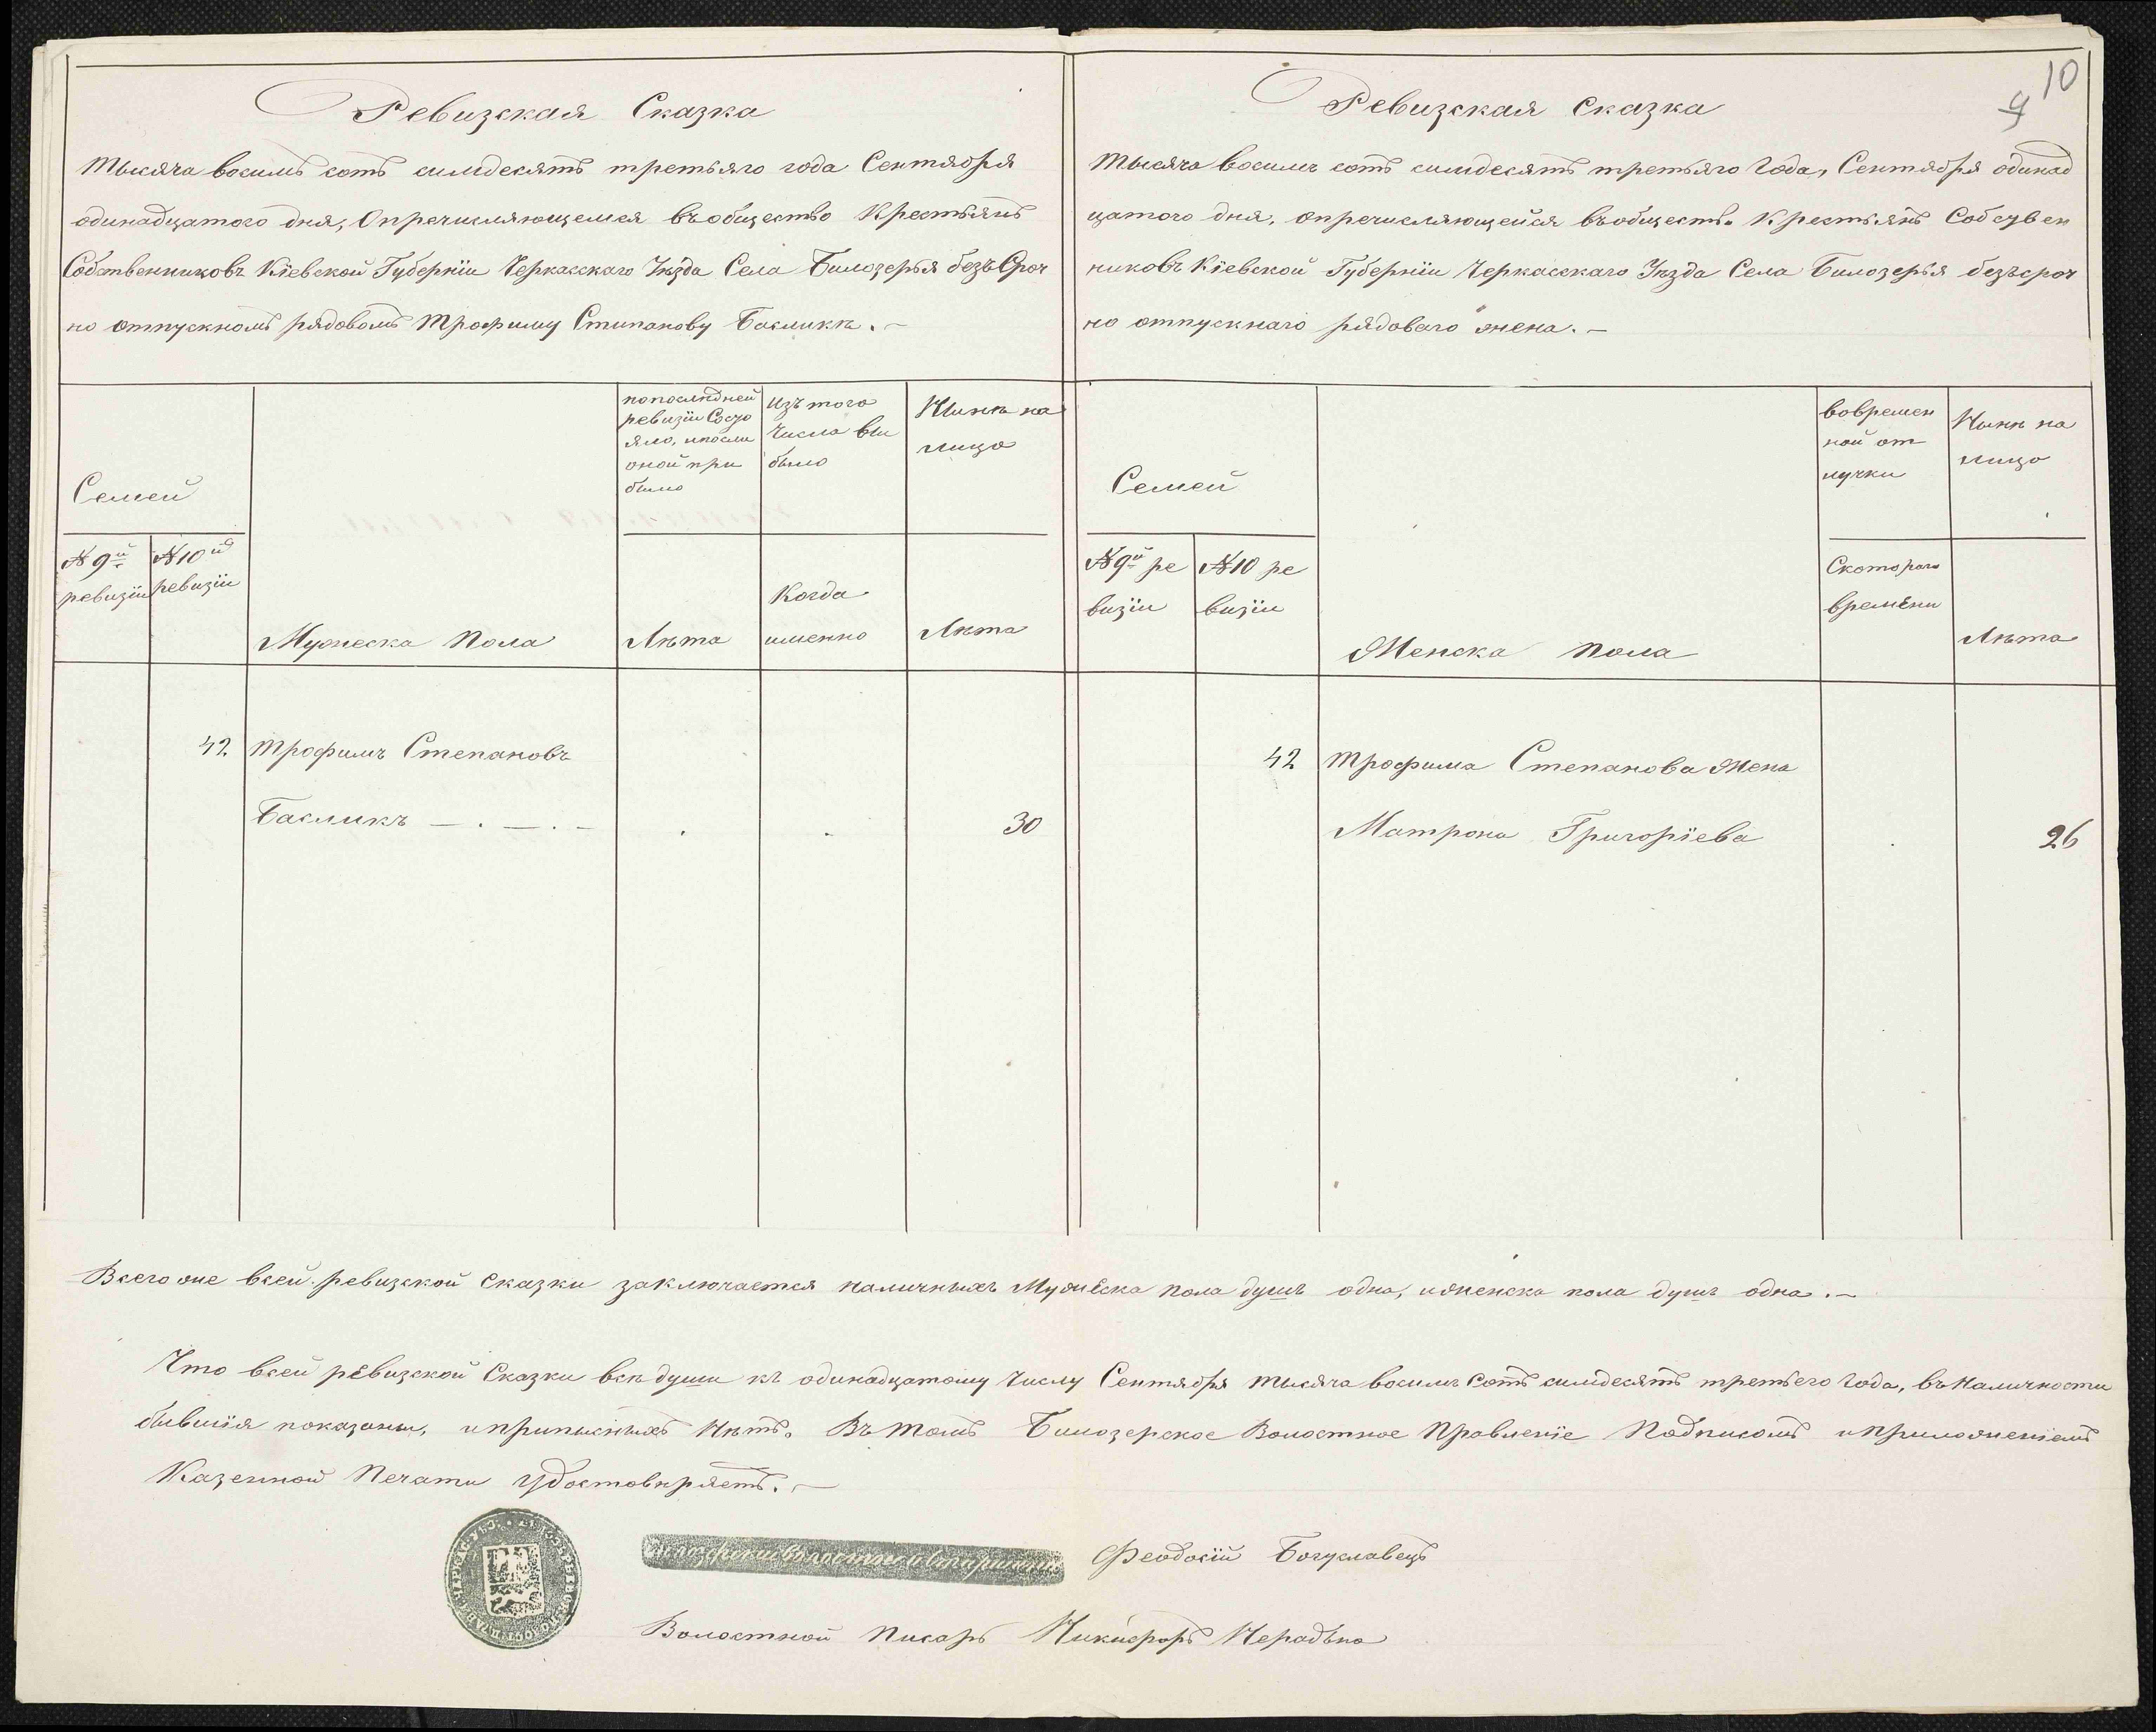 10
9
Ревизская Сказка
Тысяча восимь сотъ симдесятъ третьяго года Сентября
одинадцатого дня, Опречисляющемся въобщество Крестьянъ
Собственниковъ Кіевской Губерніи Черкасскаго Уѣзда Села Билозерья безъСроч
но отпускномъ рядовомъ Трофиму Стипанову Басликѣ.
Семей
№ 9й
ревизіи
№ 10й
ревизіи
Мужеска Пола
попослѣдней
ревизіи Состо
яло, ипосли
оной при
было
Лѣта
Изъ того
Числа вы
было
Когда
именно
Нынѣ на
лицо
Лѣта
42 Трофимъ Степановъ
Басликъ 30
Ревизская Сказка
Тысяча восимъ сотъ симдесятъ третьяго Года, Сентября одинад
цатого дня, опречисляющейся въобществ. Крестьянъ Собствен
никовъ Кіевской Губерніи Черкасскаго Уѣзда Села Билозерья безъсроч
но отпускнаго рядоваго жена.
Семей
№ 9й ре
визіи
№ 10 ре
визіи
Женска Пола
вовремен
ной от
лучки
Скотораго
времени
Нынѣ на
лицо
Лѣта
42 Трофима Степанова Жена
Матрона Григоріева 26
Всего же всей ревизской сказки заключается наличныхъ Мужеска пола душъ одна, иженска пола душъ одна.
Что всей ревизской Сказки всѣ души къ одинадцатому Числу Сентября тысяча восимъ Сотъ симдесятъ третьего Года, въ Наличности
бывшія показаны, иприписныхъ Нѣтъ. Въ томъ Билозерское Волостное Правленіе Подписомъ иприложеніемъ
Казенной Печати удостовѣряетъ.
Феодосій Богуславецъ
Волостной Писарь Никифоръ Нерадько